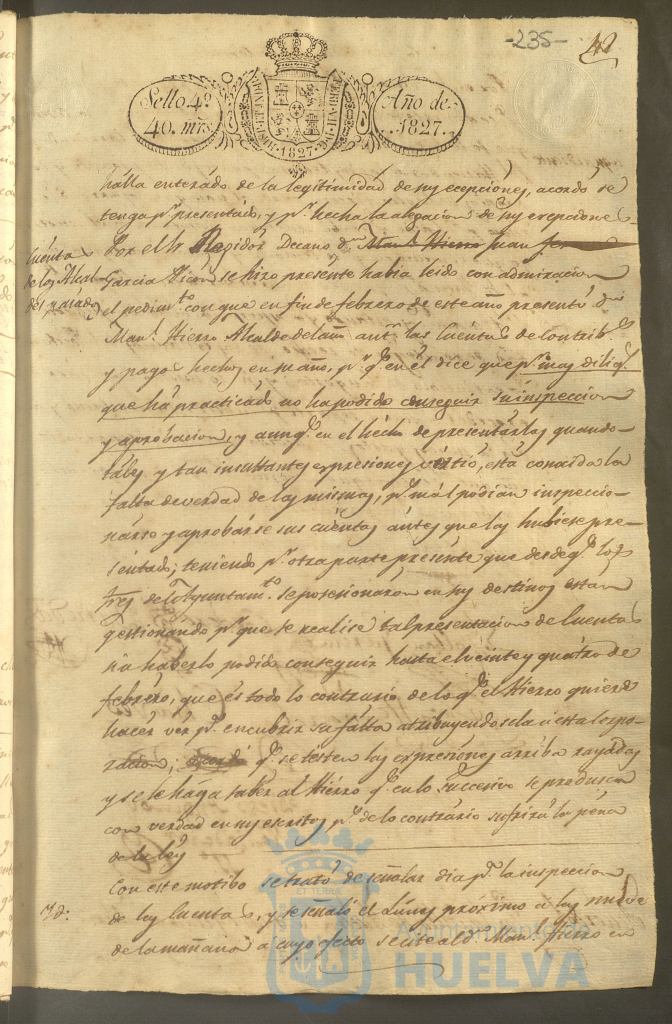 -235-
42
Sello 4º
40. mrs.
Año de
1827.
HISPANIARUM REX
1827
halla enterado de la legitimidad de sus ecepciones, acordó se
tenga pr. presentado, y pr. hecha la alegacion de sus ecepciones
Cuenta
de los Alcal-
des pasados
Por el Sr. Regidor Decano Dn. Man.l Hierro Juan
Garcia se hizo presente habia leido con admiracion
el pedim.to con que en fin de febrero de este año presentó Dn.
Man.l Hierro Alcalde del año ant.r las Cuentas de Contrib.s
y pagos hechos en su año, pr. q.e en el dice que pr. mas dilig.s
que ha practicado no ha podido conseguir su inspeccion
y aprobacion, y aunq.e en el hecho de presentarlas quando
tales y tan insultantes expresiones vertió, está conocida la
falta de verdad de las mismas, pr. mal podian inspeccio-
narse y aprobarse sus cuentas antes que las hubiese pre-
sentado; teniendo pr. otra parte presente que desde q.e los
Sres. del Ayuntam.to se posesionaron en sus destinos estan
gestionando pr. que se realise la presentacion de Cuentas
sin haberlo podido conseguir hasta el veinte y quatro de
febrero, que es todo lo contrario de lo q.e el Hierro quiere
hacer ver pr. encubrir su falta atribuyendosela a esta Corpo-
racion; acordó q.e se testen las expresiones arriba rayadas
y se le haga saber al Hierro q.e en lo succesivo se produsca
con verdad en sus escritos pr. de lo contrario sufrirá la pena
de la ley
Con este motibo se trató de señalar dia pr. la inspeccion
Yd.
de las Cuentas, y se señaló el Lunes próximo a las nueve
de la mañana a cuyo efecto se cite al Dn. Man.l Hierro en
Ayuntamiento de
HUELVA